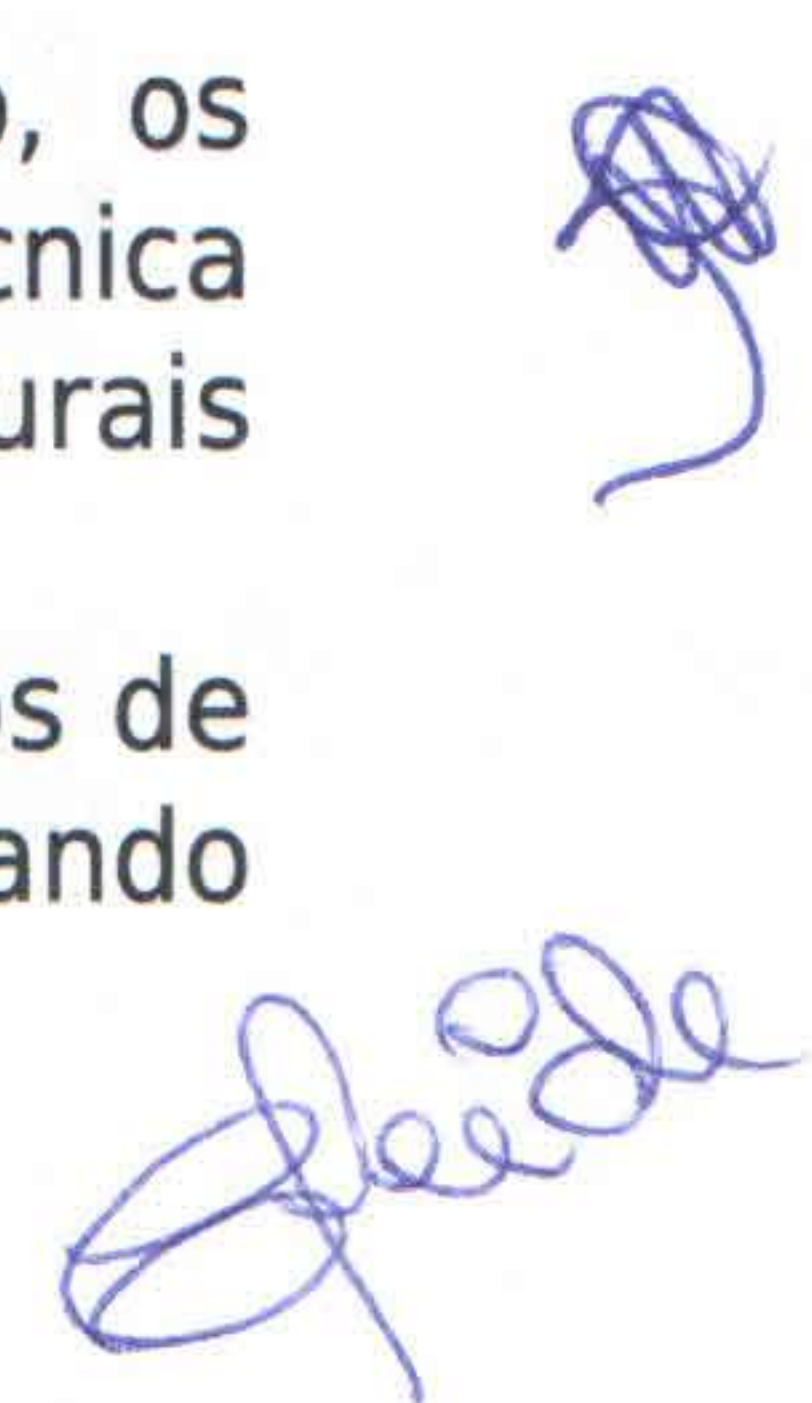 o, os
cnica
urais
os de
ando